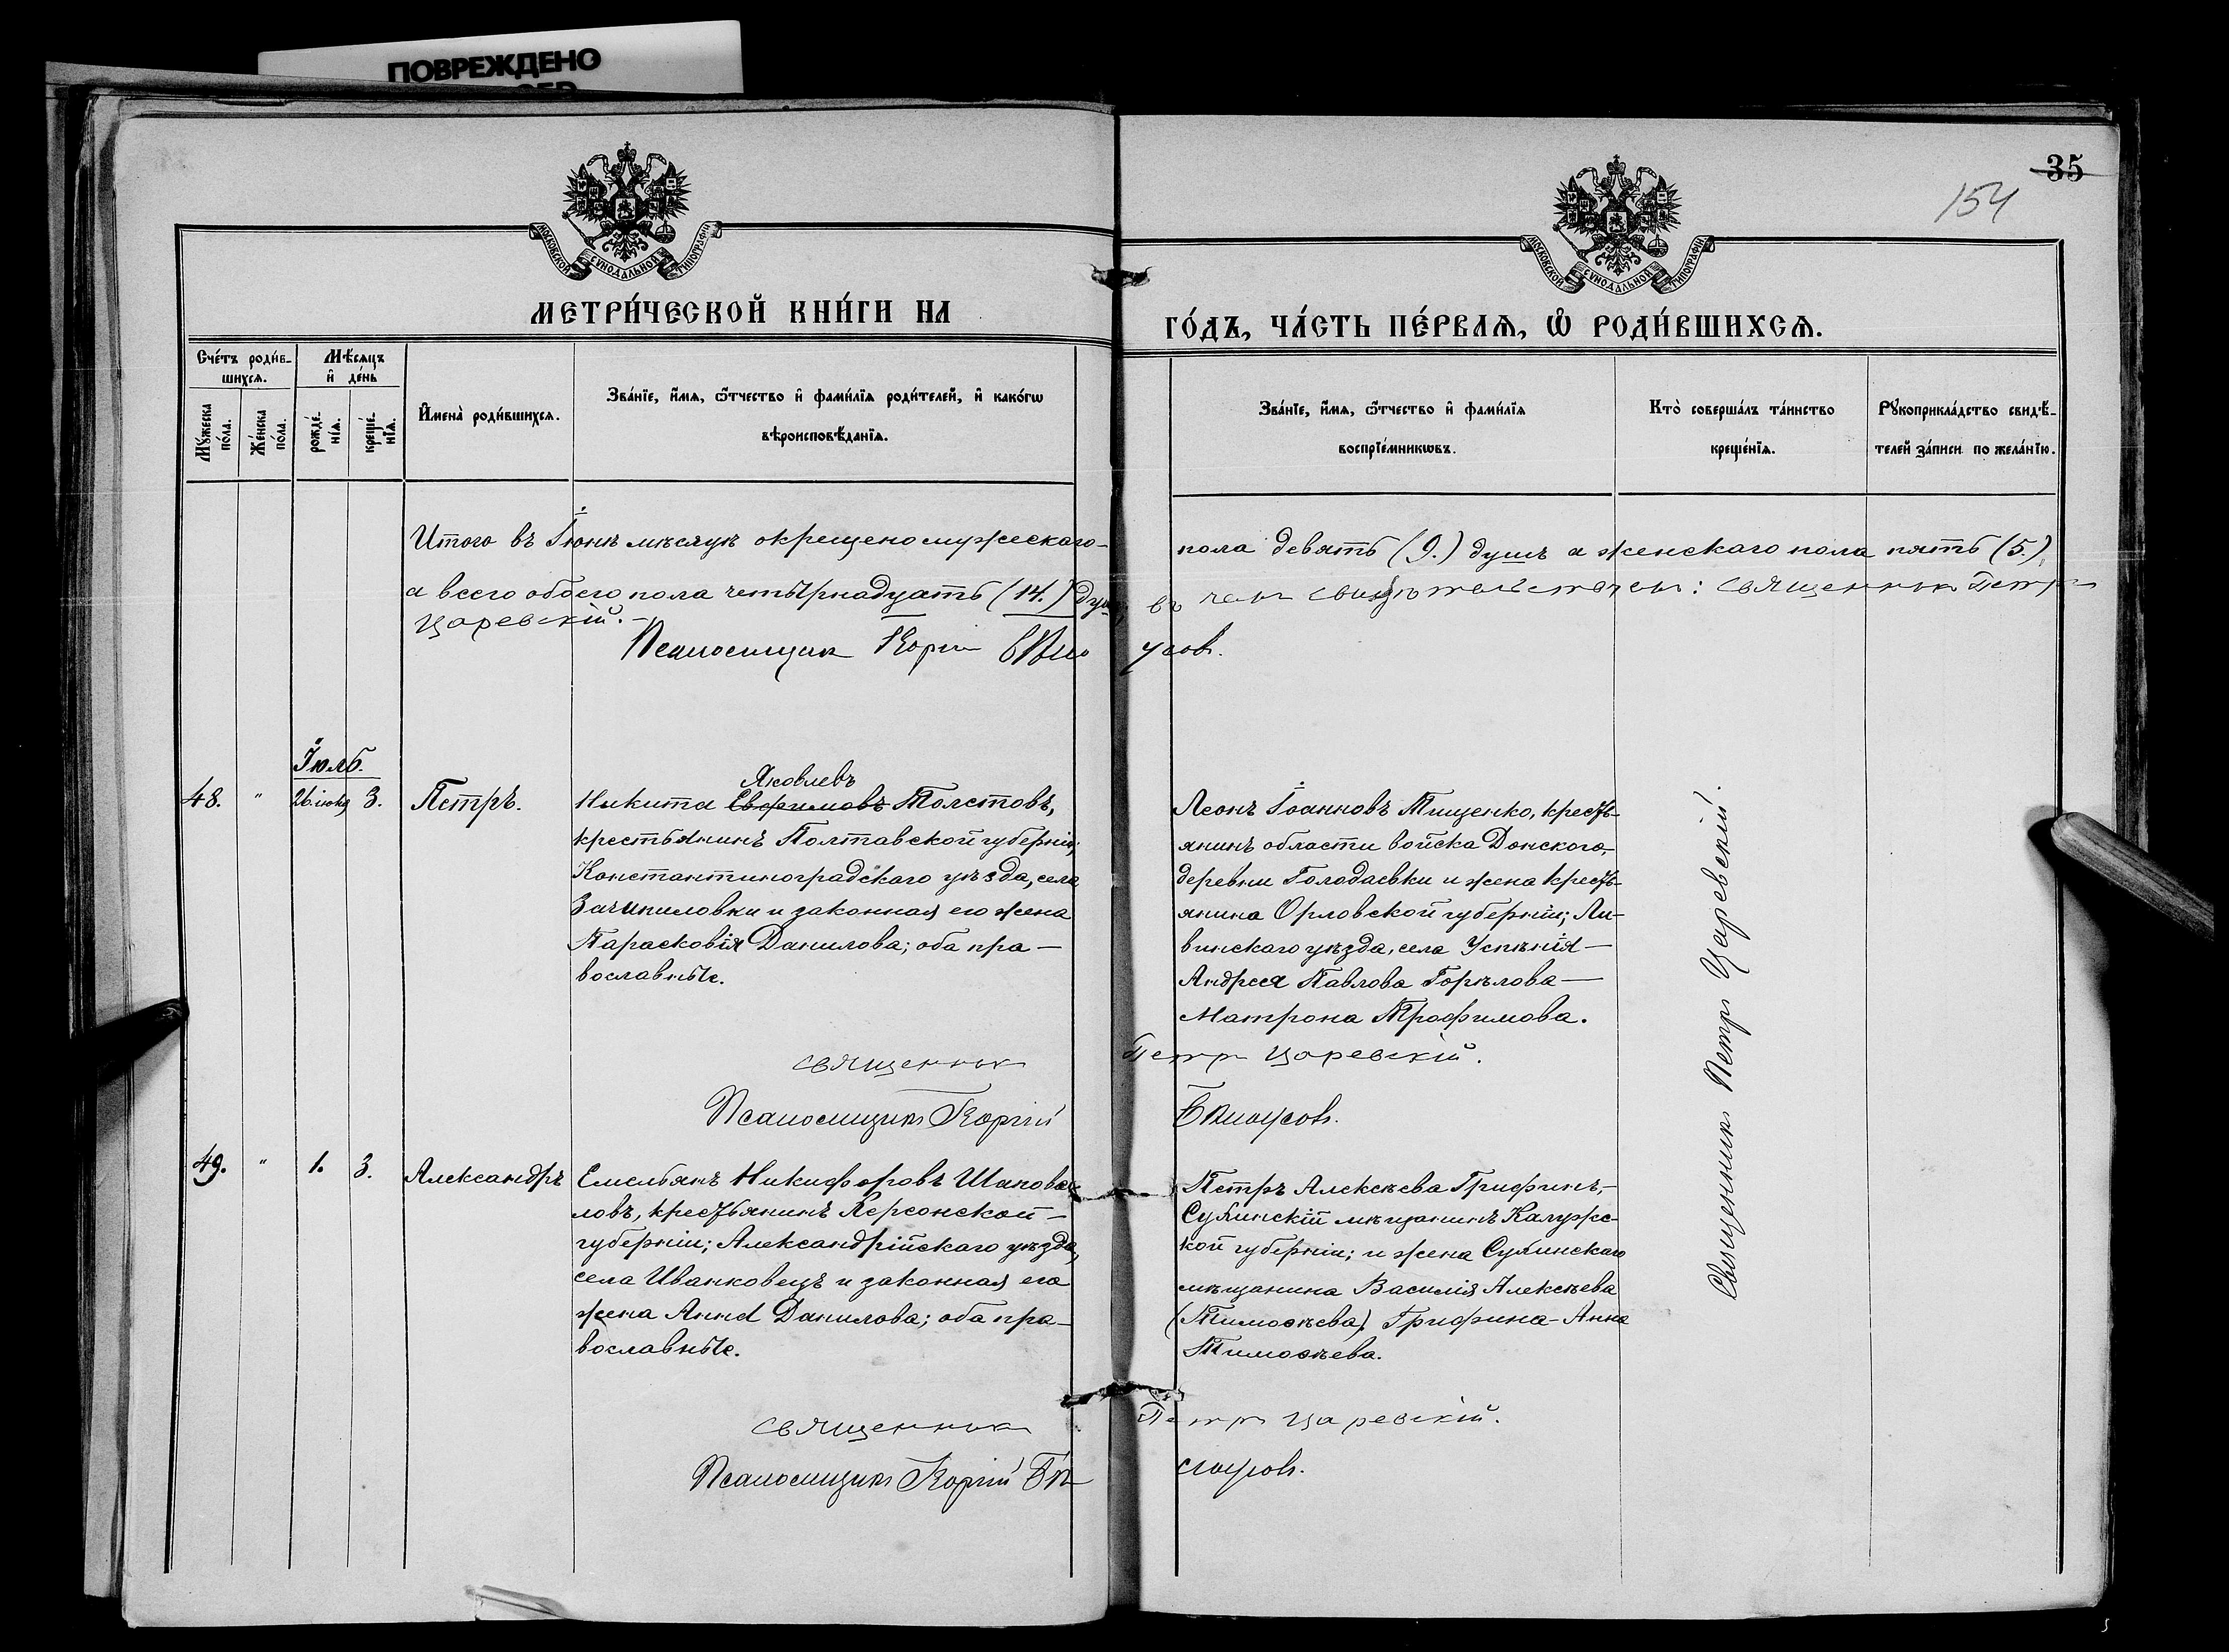 ПОВРЕЖДЕНО
35
154
МОСКОВСКОЙ СУНОДАЛЬНОЙ ТИПОГРАФІИ
МОСКОВСКОЙ СУНОДАЛЬНОЙ ТИПОГРАФІИ
МЕТРИ́ЧЕСКОЙ КНИ́ГИ НА
ГО́ДЪ, ЧА́СТЬ ПЕ́РВАЯ, Ѿ РОДИ́ВШИХСЯ.
Сче́тъ роди́в-
шихся.
Мѣ́сяцъ
и҆ де́нь
Мꙋ́жеска
по́ла.
Же́нска
по́ла.
рожде́-
нїя.
креще́-
нїя.
И҆мена̀ роди́вшихся.
Зва́нїе, и҆́мя, ѻ҆́тчество и҆ фами́лїя роди́телей, и҆ како́гѡ
вѣроисповѣ́данїя.
Зва́нїе, и҆́мя, ѻ҆́тчество и҆ фами́лїя
воспрїе́мникѡвъ.
Кто̀ соверша́лъ та́инство
креще́нїя.
Рꙋкоприкла́дство свидѣ́-
телей за́писи по жела́нїю.
Итого въ Іюнѣ мѣсяцѣ окрещено мужескаго-
пола девять (9.) душъ а женскаго пола пять (5.),
а всего обоего пола четырнадцать (14.) душ,
въ чем свидѣтельствуем: священник Петр
Царевскій.-
Псаломщик Георгій Бѣло
усов.
Іюль.
48. " 26. іюня 3. Петръ.
Яковлевъ
Никита Евфимовъ Толстовъ,
крестьянинъ Полтавской губерніи,
Константиноградскаго уѣзда, села
Зачипиловки и законная его жена
Парасковія Данилова; оба пра-
вославные.
Леонъ Іоанновъ Тищенко, кресть-
янинъ области войска Донского,
деревни Голодаевки и жена кресть-
янина Орловской губерніи; Ли-
винскаго уѣзда, села Успѣнія-
Андрея Павлова Горѣлова-
Матрона Трофимова.
Священникъ Петръ Царевскій.
священник
Петр Царевскій.
Псаломщикъ Георгій
Бѣлоусов.
49. " 1. 3. Александръ
Емельянъ Никифоровъ Шапова-
ловъ, крестьянинъ Херсонской-
губерніи; Александрійскаго уѣзда,
села Иванковецъ и законная его
жена Анна Данилова; оба пра-
вославные.
Петръ Алексѣева Грифинъ,-
мѣщанинъ Калужс-
кой губерніи; и жена
мѣщанина Василія Алексѣева
(Тимоѳѣева). Грифина-Анна
Тимоѳѣева.
священник
Петр Царевскій.
Псаломщикъ Георгій Бѣ
лоусов.